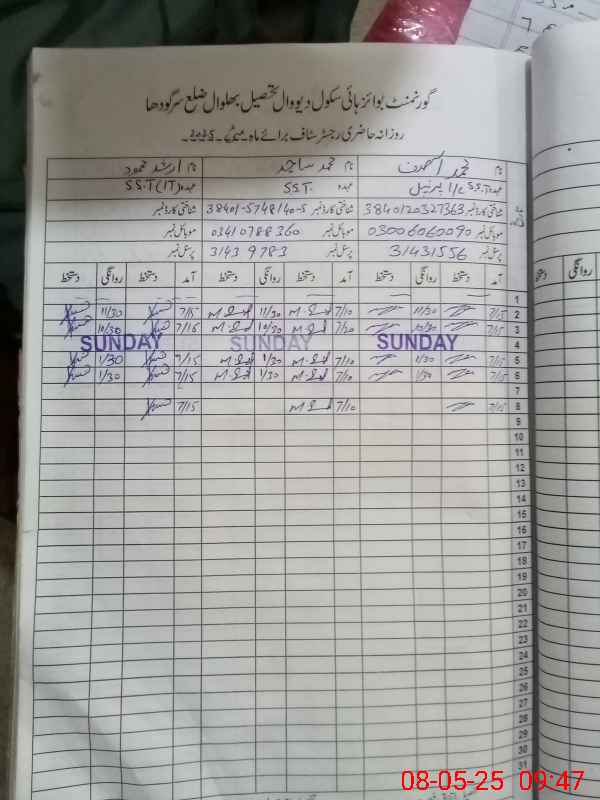 گورنمنٹ بوائز ہائی سکول دیووال تحصیل بھلوال ضلع سرگودھا
روزانہ حاضری رجسٹر سٹاف برائے ماہ مئی 2025ء
نام محمد اشرف نام محمد ساجد نام ارشد محمود
عہدہ S.S.T I/C پرنسپل عہدہ S.S.T. عہدہ S.S.T(IT)
شناختی کارڈ نمبر 3840120327363 شناختی کارڈ نمبر 38401-5748140-5 شناختی کارڈ نمبر
موبائل نمبر 03006060090 موبائل نمبر 03410788360 موبائل نمبر
پرسنل نمبر 31431556 پرسنل نمبر 31439783 پرسنل نمبر
آمد دستخط روانگی دستخط آمد دستخط روانگی دستخط آمد دستخط روانگی دستخط
1
2 7/15 11/30 7/10 11/30 7/15 11/30
3 7/15 10/30 7/10 10/30 7/15 10/30
4 SUNDAY SUNDAY SUNDAY
5 7/15 1/30 7/10 1/30 7/15 1/30
6 7/15 1/30 7/10 1/30 7/15 1/30
7
8 7/15 7/10 7/15
9
10
11
12
13
14
15
16
17
18
19
20
21
22
23
24
25
26
27
28
29
30
31
08-05-25 09:47